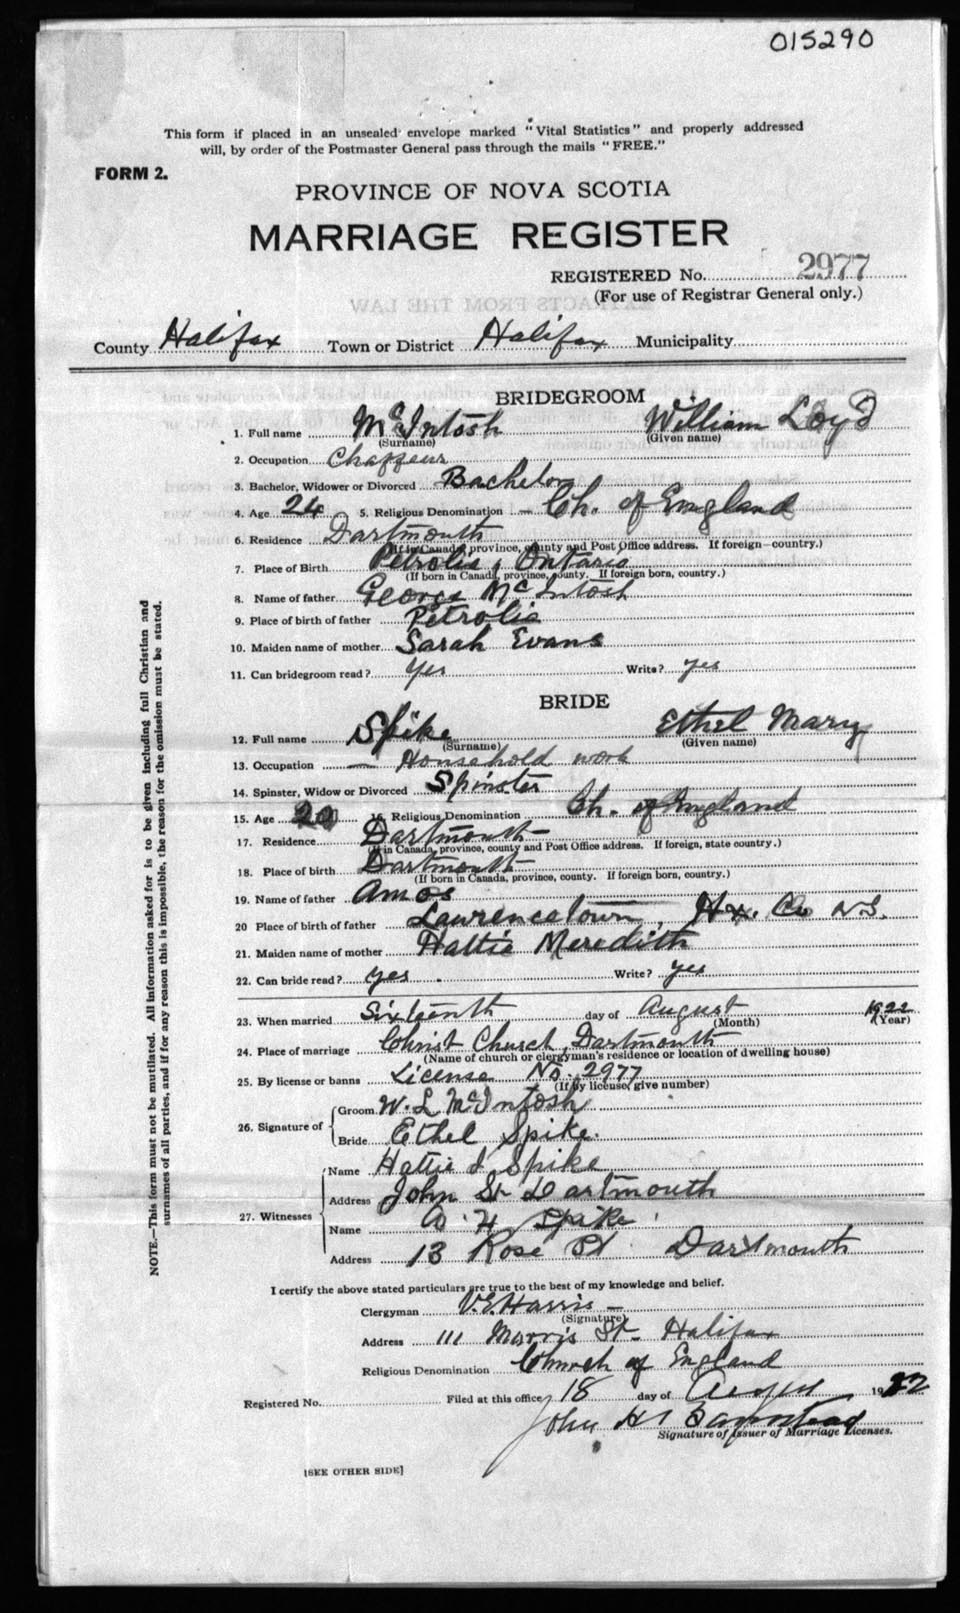 015290
This form if placed in an unsealed envelope marked "Vital Statistics" and properly addressed
will, by order of the Postmaster General pass through the mails "FREE."
FORM 2.
PROVINCE OF NOVA SCOTIA
MARRIAGE REGISTER
REGISTERED No. 2977
(For use of Registrar General only.)
County Halifax Town or District Halifax Municipality
BRIDEGROOM
1. Full name McIntosh William Loyd
(Surname) (Given name)
2. Occupation Chaffeur
3. Bachelor, Widower or Divorced Bachelor
4. Age 24 5. Religious Denomination - Ch. of England
6. Residence Dartmouth
(If in Canada, province, county and Post Office address. If foreign—country.)
7. Place of Birth Petrolia, Ontario
(If born in Canada, province, county. If foreign born, country.)
8. Name of father George McIntosh
9. Place of birth of father Petrolia
10. Maiden name of mother Sarah Evans
11. Can bridegroom read? yes Write? yes
BRIDE
12. Full name Spike Ethel Mary
(Surname) (Given name)
13. Occupation — Household work
14. Spinster, Widow or Divorced Spinster
15. Age 20 16. Religious Denomination Ch. of England
17. Residence Dartmouth
(If in Canada, province, county and Post Office address. If foreign, state country.)
18. Place of birth Dartmouth
(If born in Canada, province, county. If foreign born, country.)
19. Name of father Amos
20 Place of birth of father Lawrencetown, Hx. Co N.S.
21. Maiden name of mother Hattie Meredith
22. Can bride read? yes Write? yes
23. When married Sixteenth day of August 1922
(Month) (Year)
24. Place of marriage Christ Church, Dartmouth
(Name of church or clergyman's residence or location of dwelling house)
25. By license or banns License No. 2977
(If by license, give number)
26. Signature of Groom W. L McIntosh
Bride Ethel Spike.
27. Witnesses Name Hattie I Spike
Address John St Dartmouth
Name A. H Spike
Address 13 Rose St Dartmouth
I certify the above stated particulars are true to the best of my knowledge and belief.
Clergyman V.E. Harris —
(Signature)
Address 111 Morris St. Halifax
Religious Denomination Church of England
Registered No. Filed at this office 18 day of August 1922
John H
Signature of Issuer of Marriage Licenses.
[SEE OTHER SIDE]
NOTE.—This form must not be mutilated. All information asked for is to be given including full Christian and
surnames of all parties, and if for any reason this is impossible, the reason for the omission must be stated.